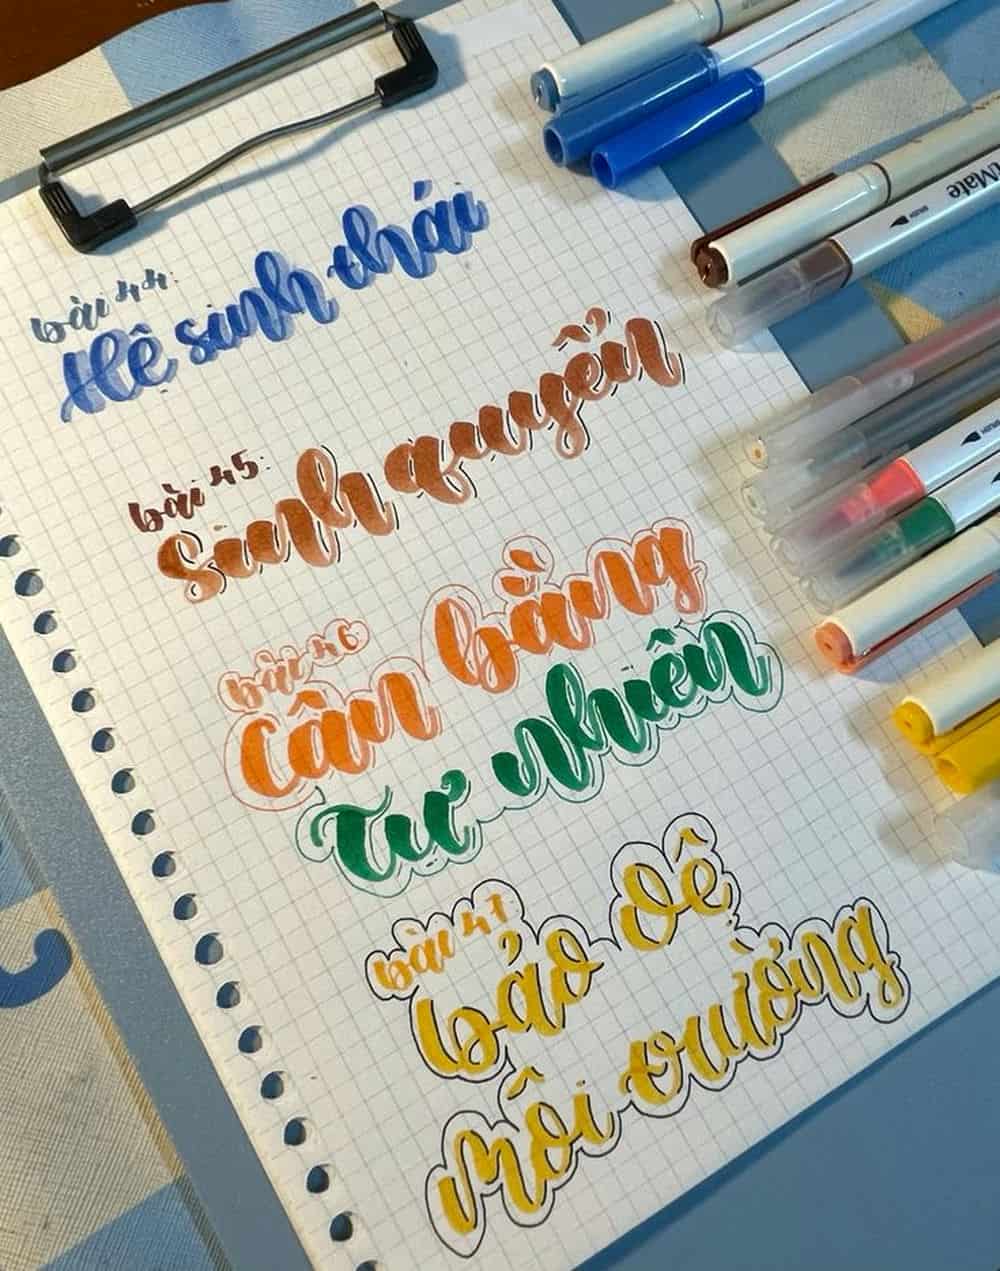 bài 44:
Hệ sinh thái
bài 45:
Sinh quyển
bài 46
Cân bằng
Tự nhiên
bài 47
bảo vệ
môi trường
BRUSH
BRUSH